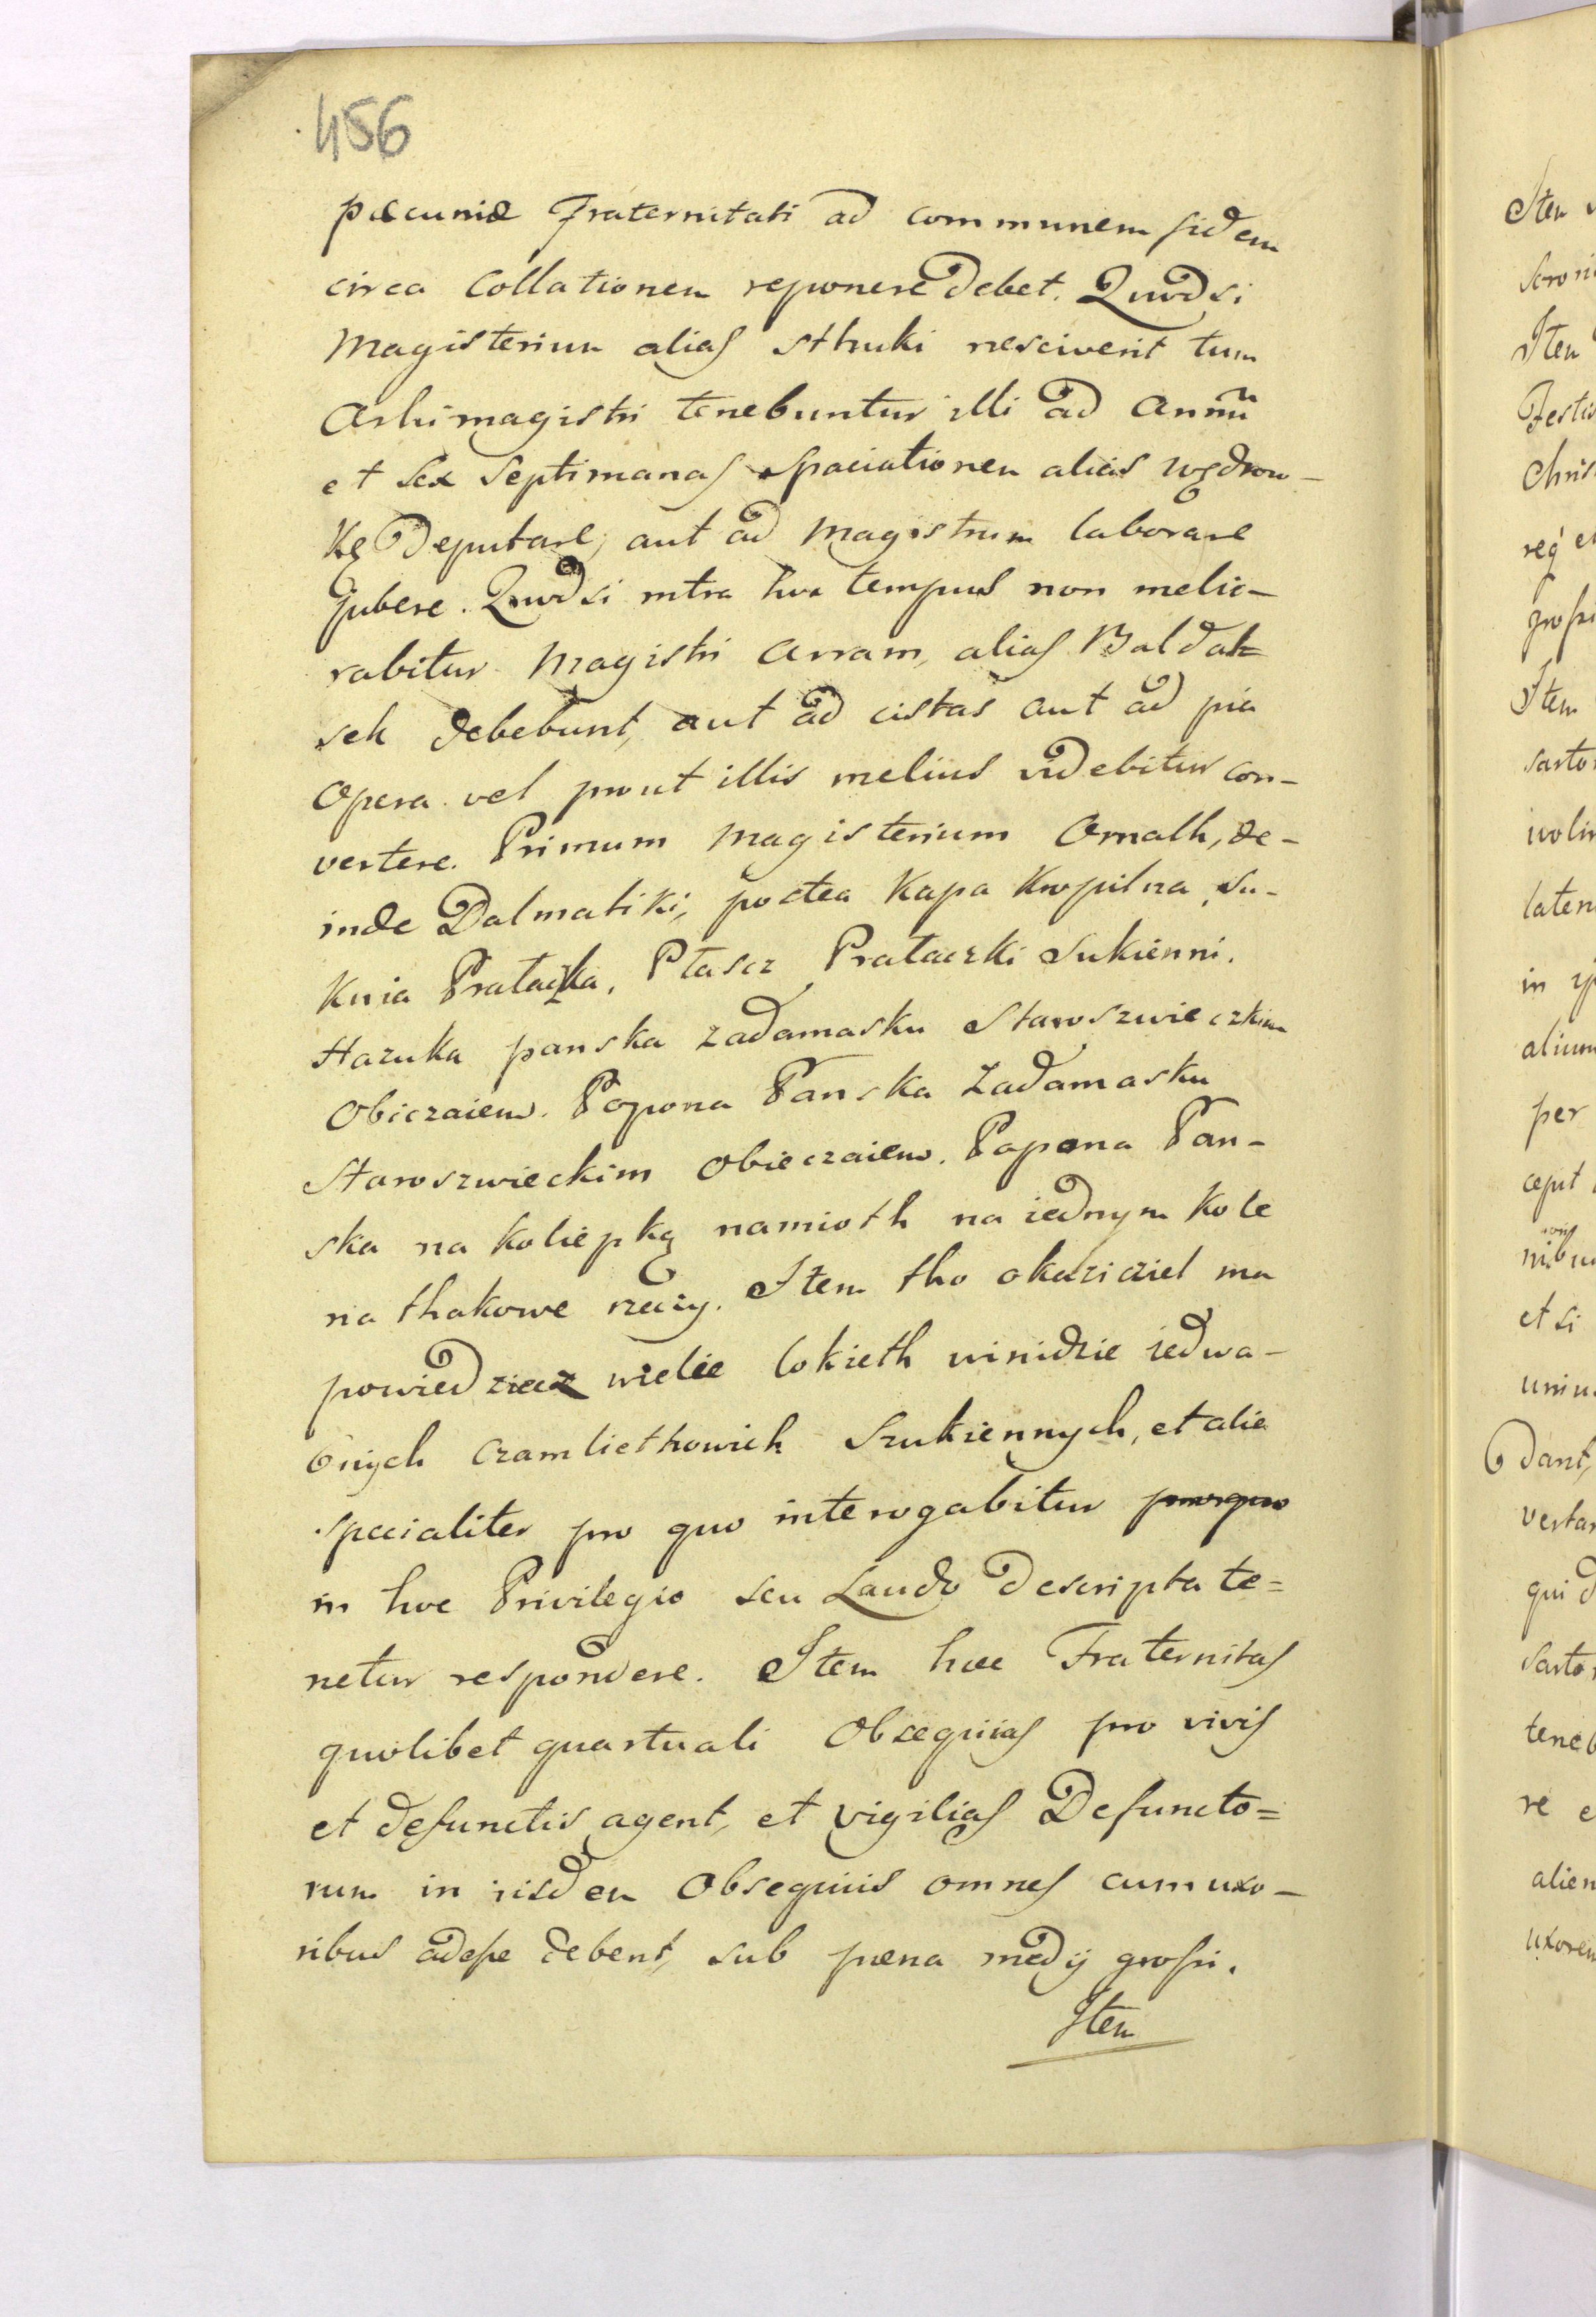 456
pæcuniæ Fraternitati ad communem fidem
circa Collationem reponere debet. Quod si
Magisterium alias sthuki nesciverit tum
Archimagistri tenebuntur illi ad Annũ
et sex septimanas spaciationem alias wędrow-
kę deputare, aut ad magistrum laborare
jubere. Quod si intra hoc tempus non melio-
rabitur Magistri Arram, alias Baldak=
sek debebunt, aut ad cistas aut ad pia
opera vel prout illis melius videbitur con-
vertere. Primum magisterium Ornath, de-
inde Dalmatiki, postea Kapa Kropilna, Su-
knia Prałaczka, Płascz Prałaczki Sukienni.
Hazuka panska zadamasku Staroszwieczkim
Obiczaiem. Popona Panska Zadamasku
Staroszwieckim Obieczaiem. Popona Pan-
ska na koliepkę namioth na iednym kole
na thakowe rzeczy. Item tho okaziciel ma
powiedziecz wielie lokieth winidzie iedwa-
bnych czamliethowich Szukiennych, et alia
specialiter pro quo interogabitur
in hoc Privilegio seu Laudo descripta te=
netur respondere. Item hæc Fraternitas
quolibet quartuali Obsequias pro vivis
et defunctis agent, et vigilias Defuncto=
rum in iisdem Obsequiis omnes cum uxo-
ribus adesse debent, sub pæna medij grossi.
Item